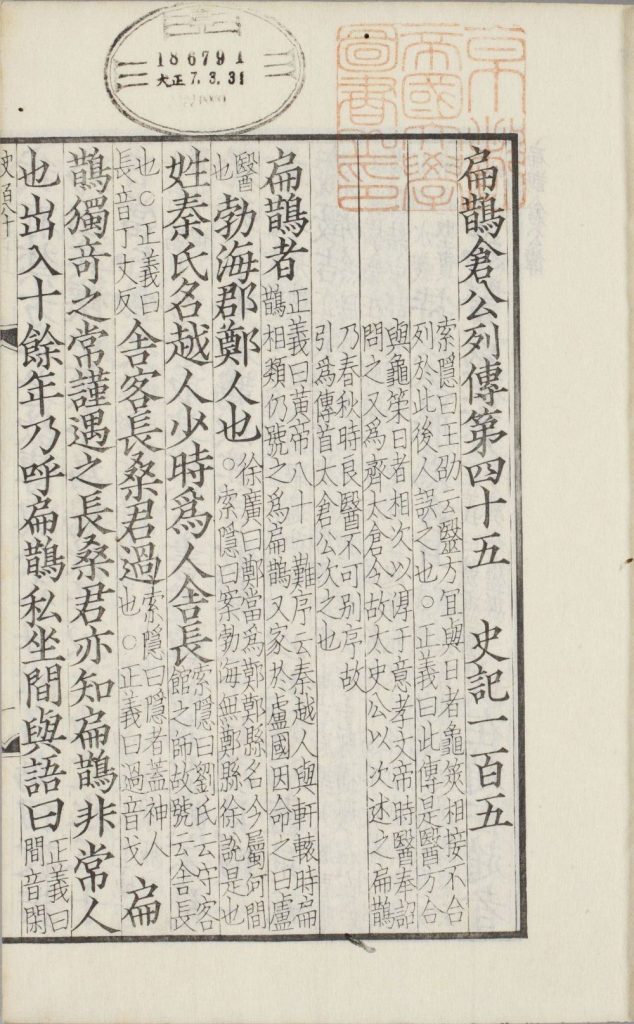 186791
大正7.3.31
京都帝國大學圖書之印
扁鵲倉公列傳第四十五 史記一百五
索隱曰王劭云醫方宜與日者龜筴相接不合
列於此後人誤之也○正義曰此傳是醫方合
與龜筞日者相次以淳于意孝文帝時醫奉詔
問之又爲齊太倉令故太史公以次述之扁鵲
乃春秋時良醫不可别序故
引爲傳首太倉公次之也
扁鵲者正義曰黃帝八十一難序云秦越人與軒轅時扁
鵲相類仍號之爲扁鵲又家於盧國因命之曰盧
醫也勃海郡鄭人也○徐廣曰鄭當爲鄚鄚縣名今屬河間
○索隱曰案勃海無鄭縣徐說是也
姓秦氏名越人少時爲人舍長索隱曰劉氏云守客
館之師故號云舍長
也○正義曰
長音丁丈反舍客長桑君過索隱曰隱者蓋神人
也○正義曰過音戈扁
鵲獨奇之常謹遇之長桑君亦知扁鵲非常人
也出入十餘年乃呼扁鵲私坐間與語曰正義曰
間音閑
史百八十